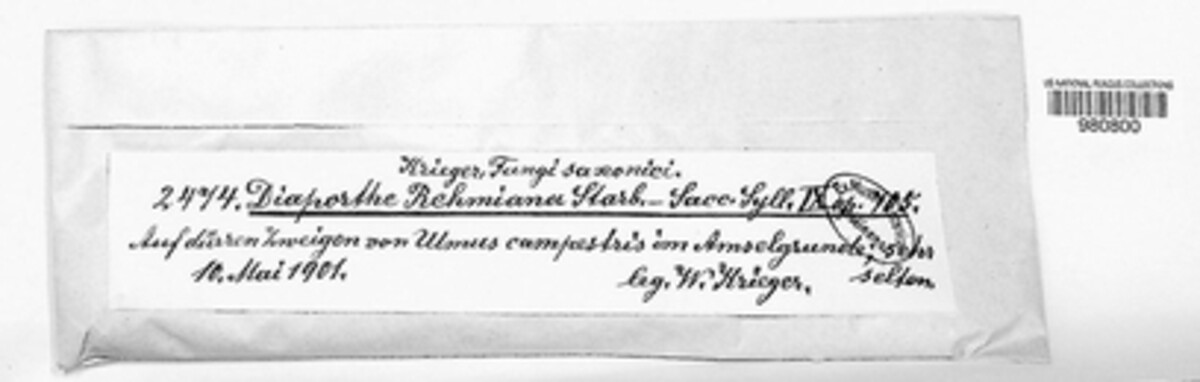 Krieger, Fungi saxonici.
2474. Diaporthe Rehmiana Starb. – Sacc. Syll. IX. p. 705.
Auf dürren Zweigen von Ulmus campestris im Amselgrunde, sehr
selten
10. Mai 1901. leg. W. Krieger.
US NATIONAL FUNGUS COLLECTIONS
980800